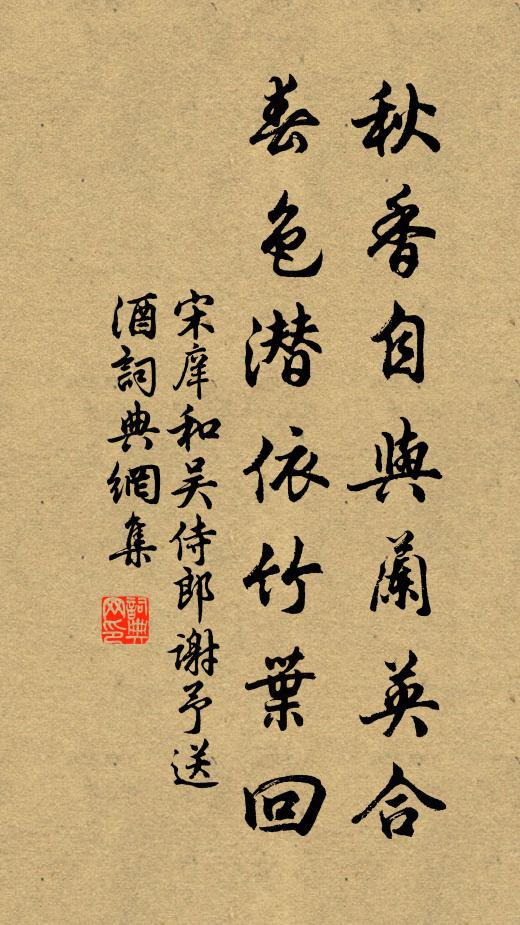 秋香自與蘭英合
春色潛依竹葉回
宋庠和吴侍郎謝予送
酒詞典網集
詞典网印